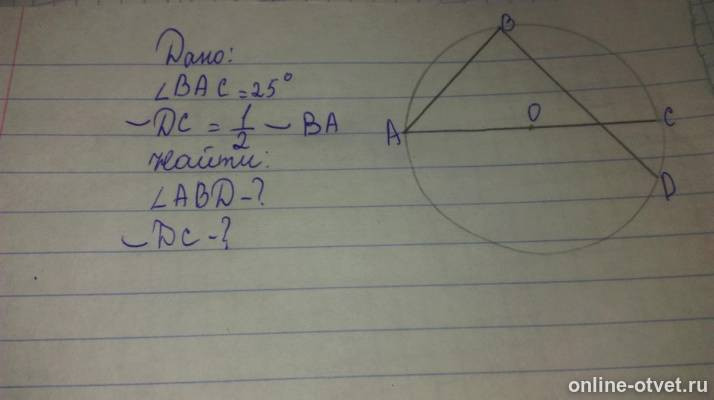 Дано:
∠BAC = 25°
◡DC = 1/2 ◡BA
Найти:
∠ABD - ?
◡DC - ?
B
A
O
C
D
online-otvet.ru